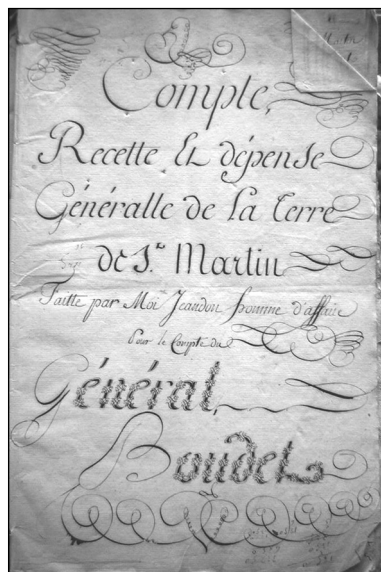 Compte,
Recette Et dépense
Généralle de la Terre
de St. Martin
Faitte par Moi Jeandon homme d'affaire
Pour le Compte du
Général,
Boudet